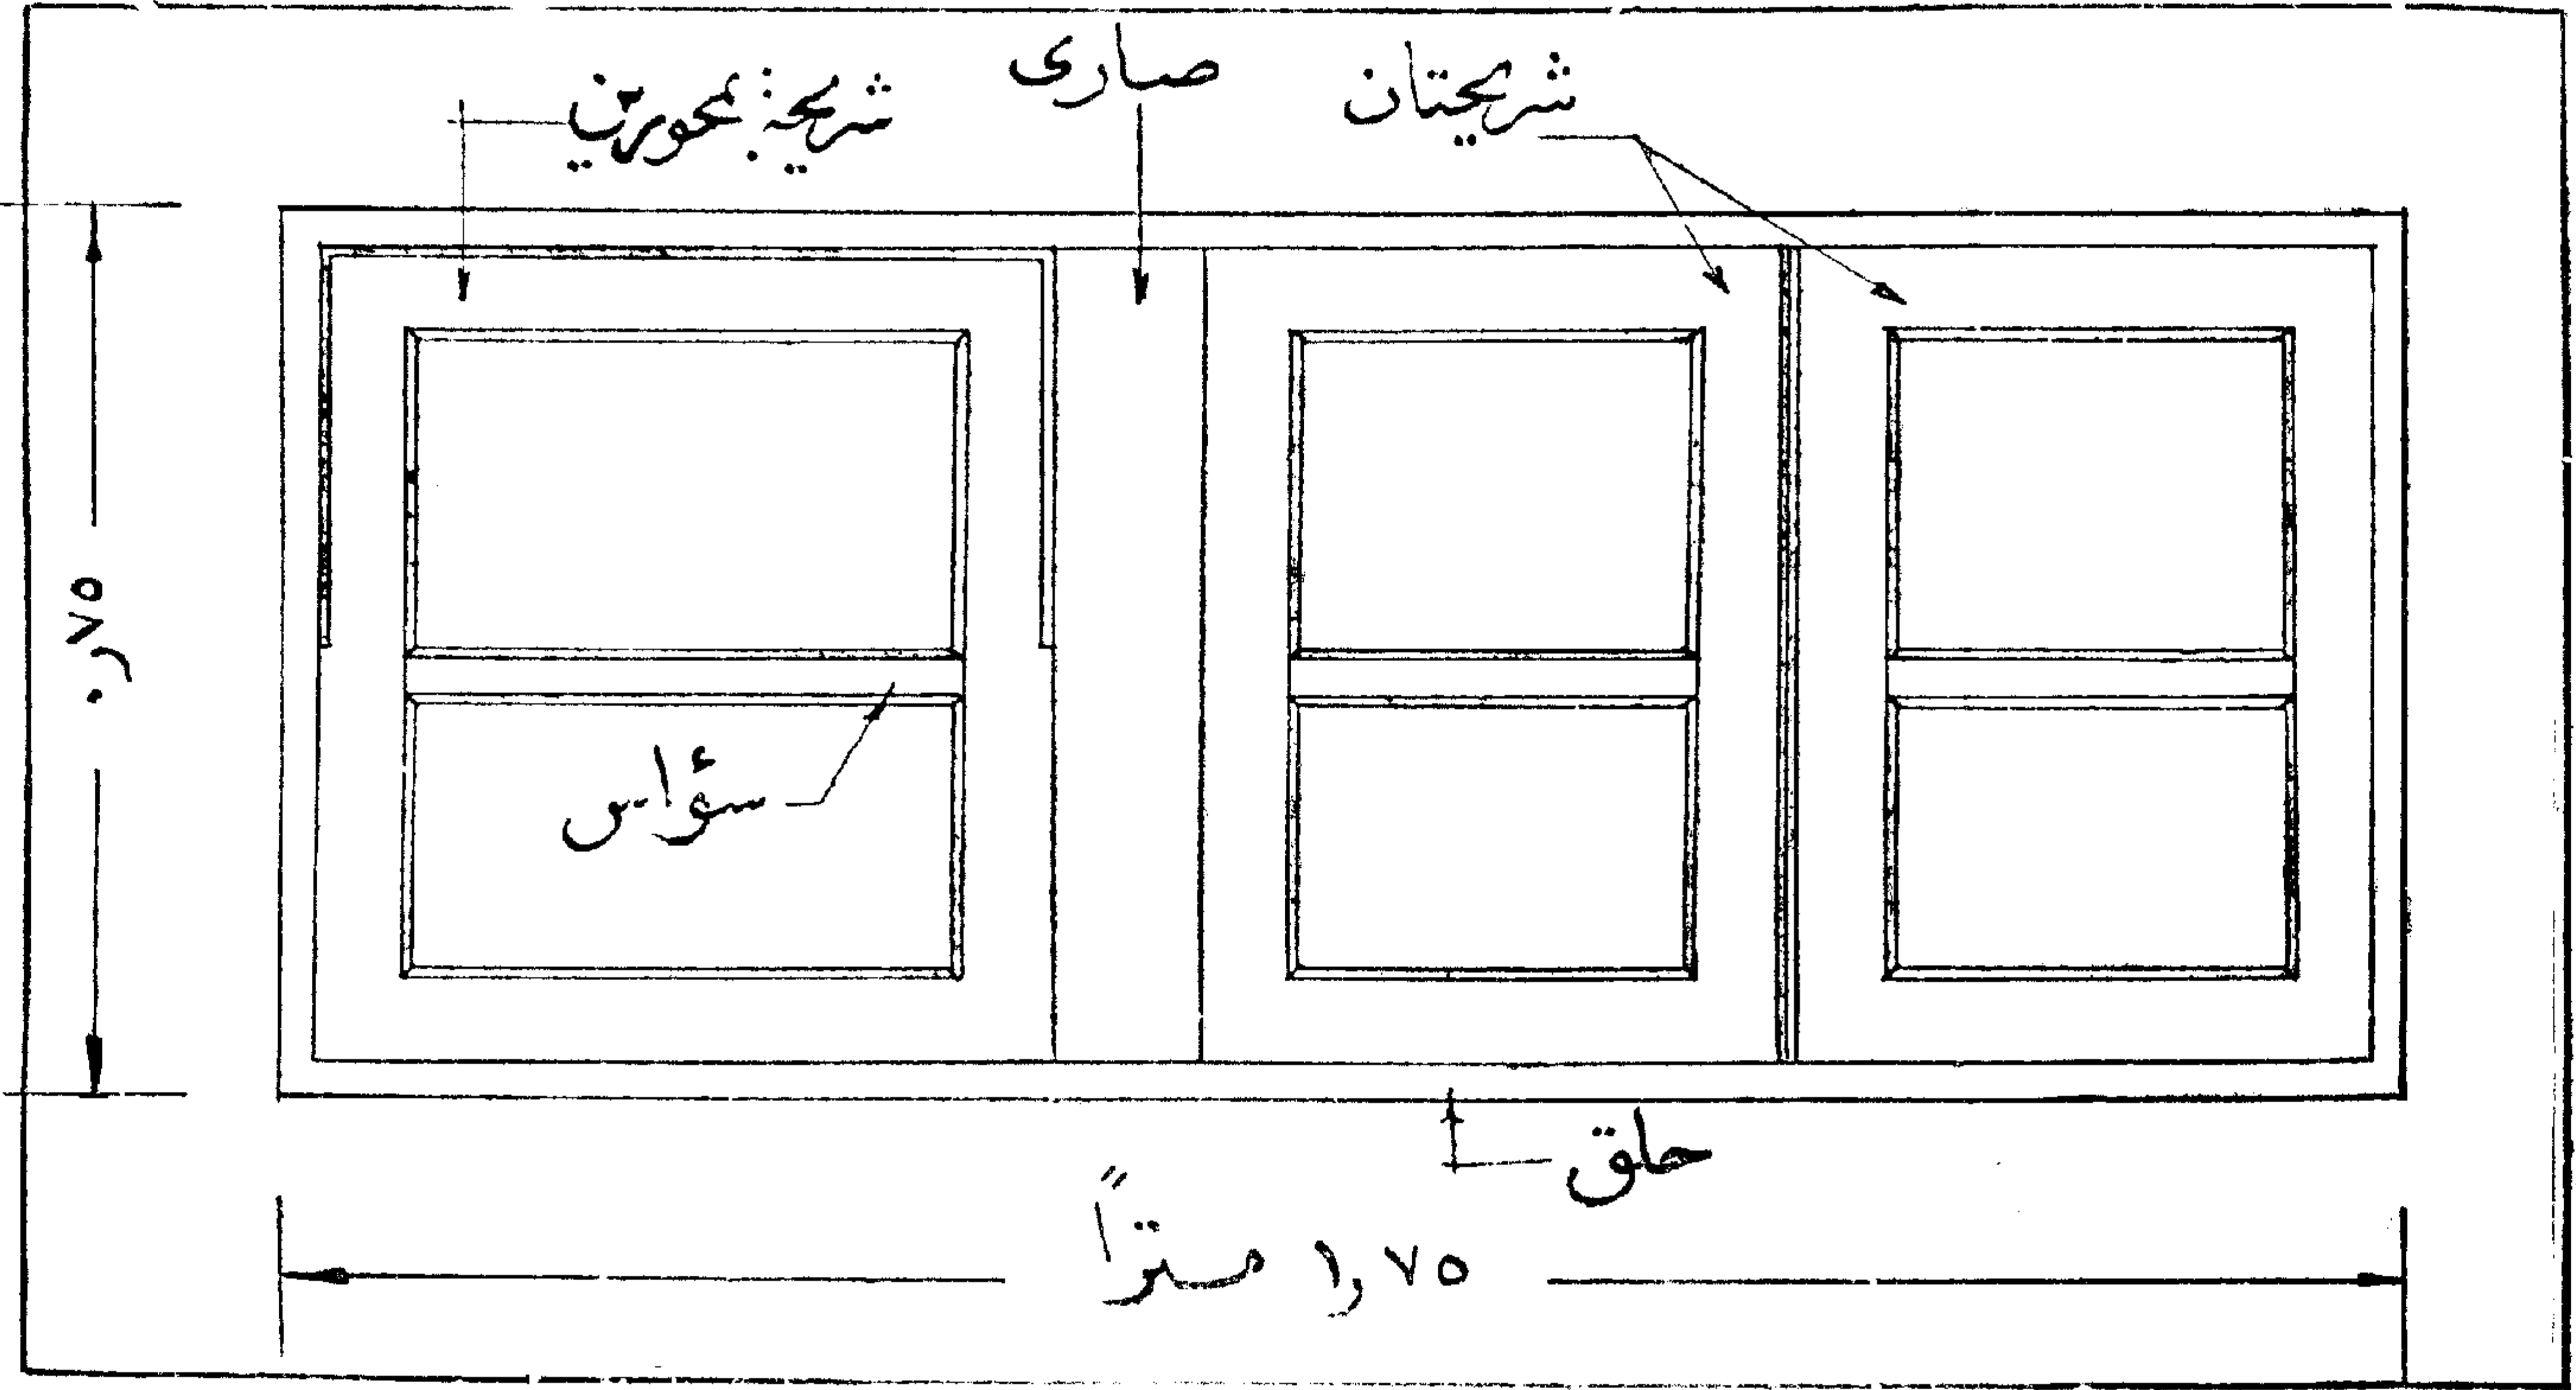 شريحتان
صارى
شريحة بمحورين
٠٫٧٥
سؤاس
حلق
١٫٧٥ متراً